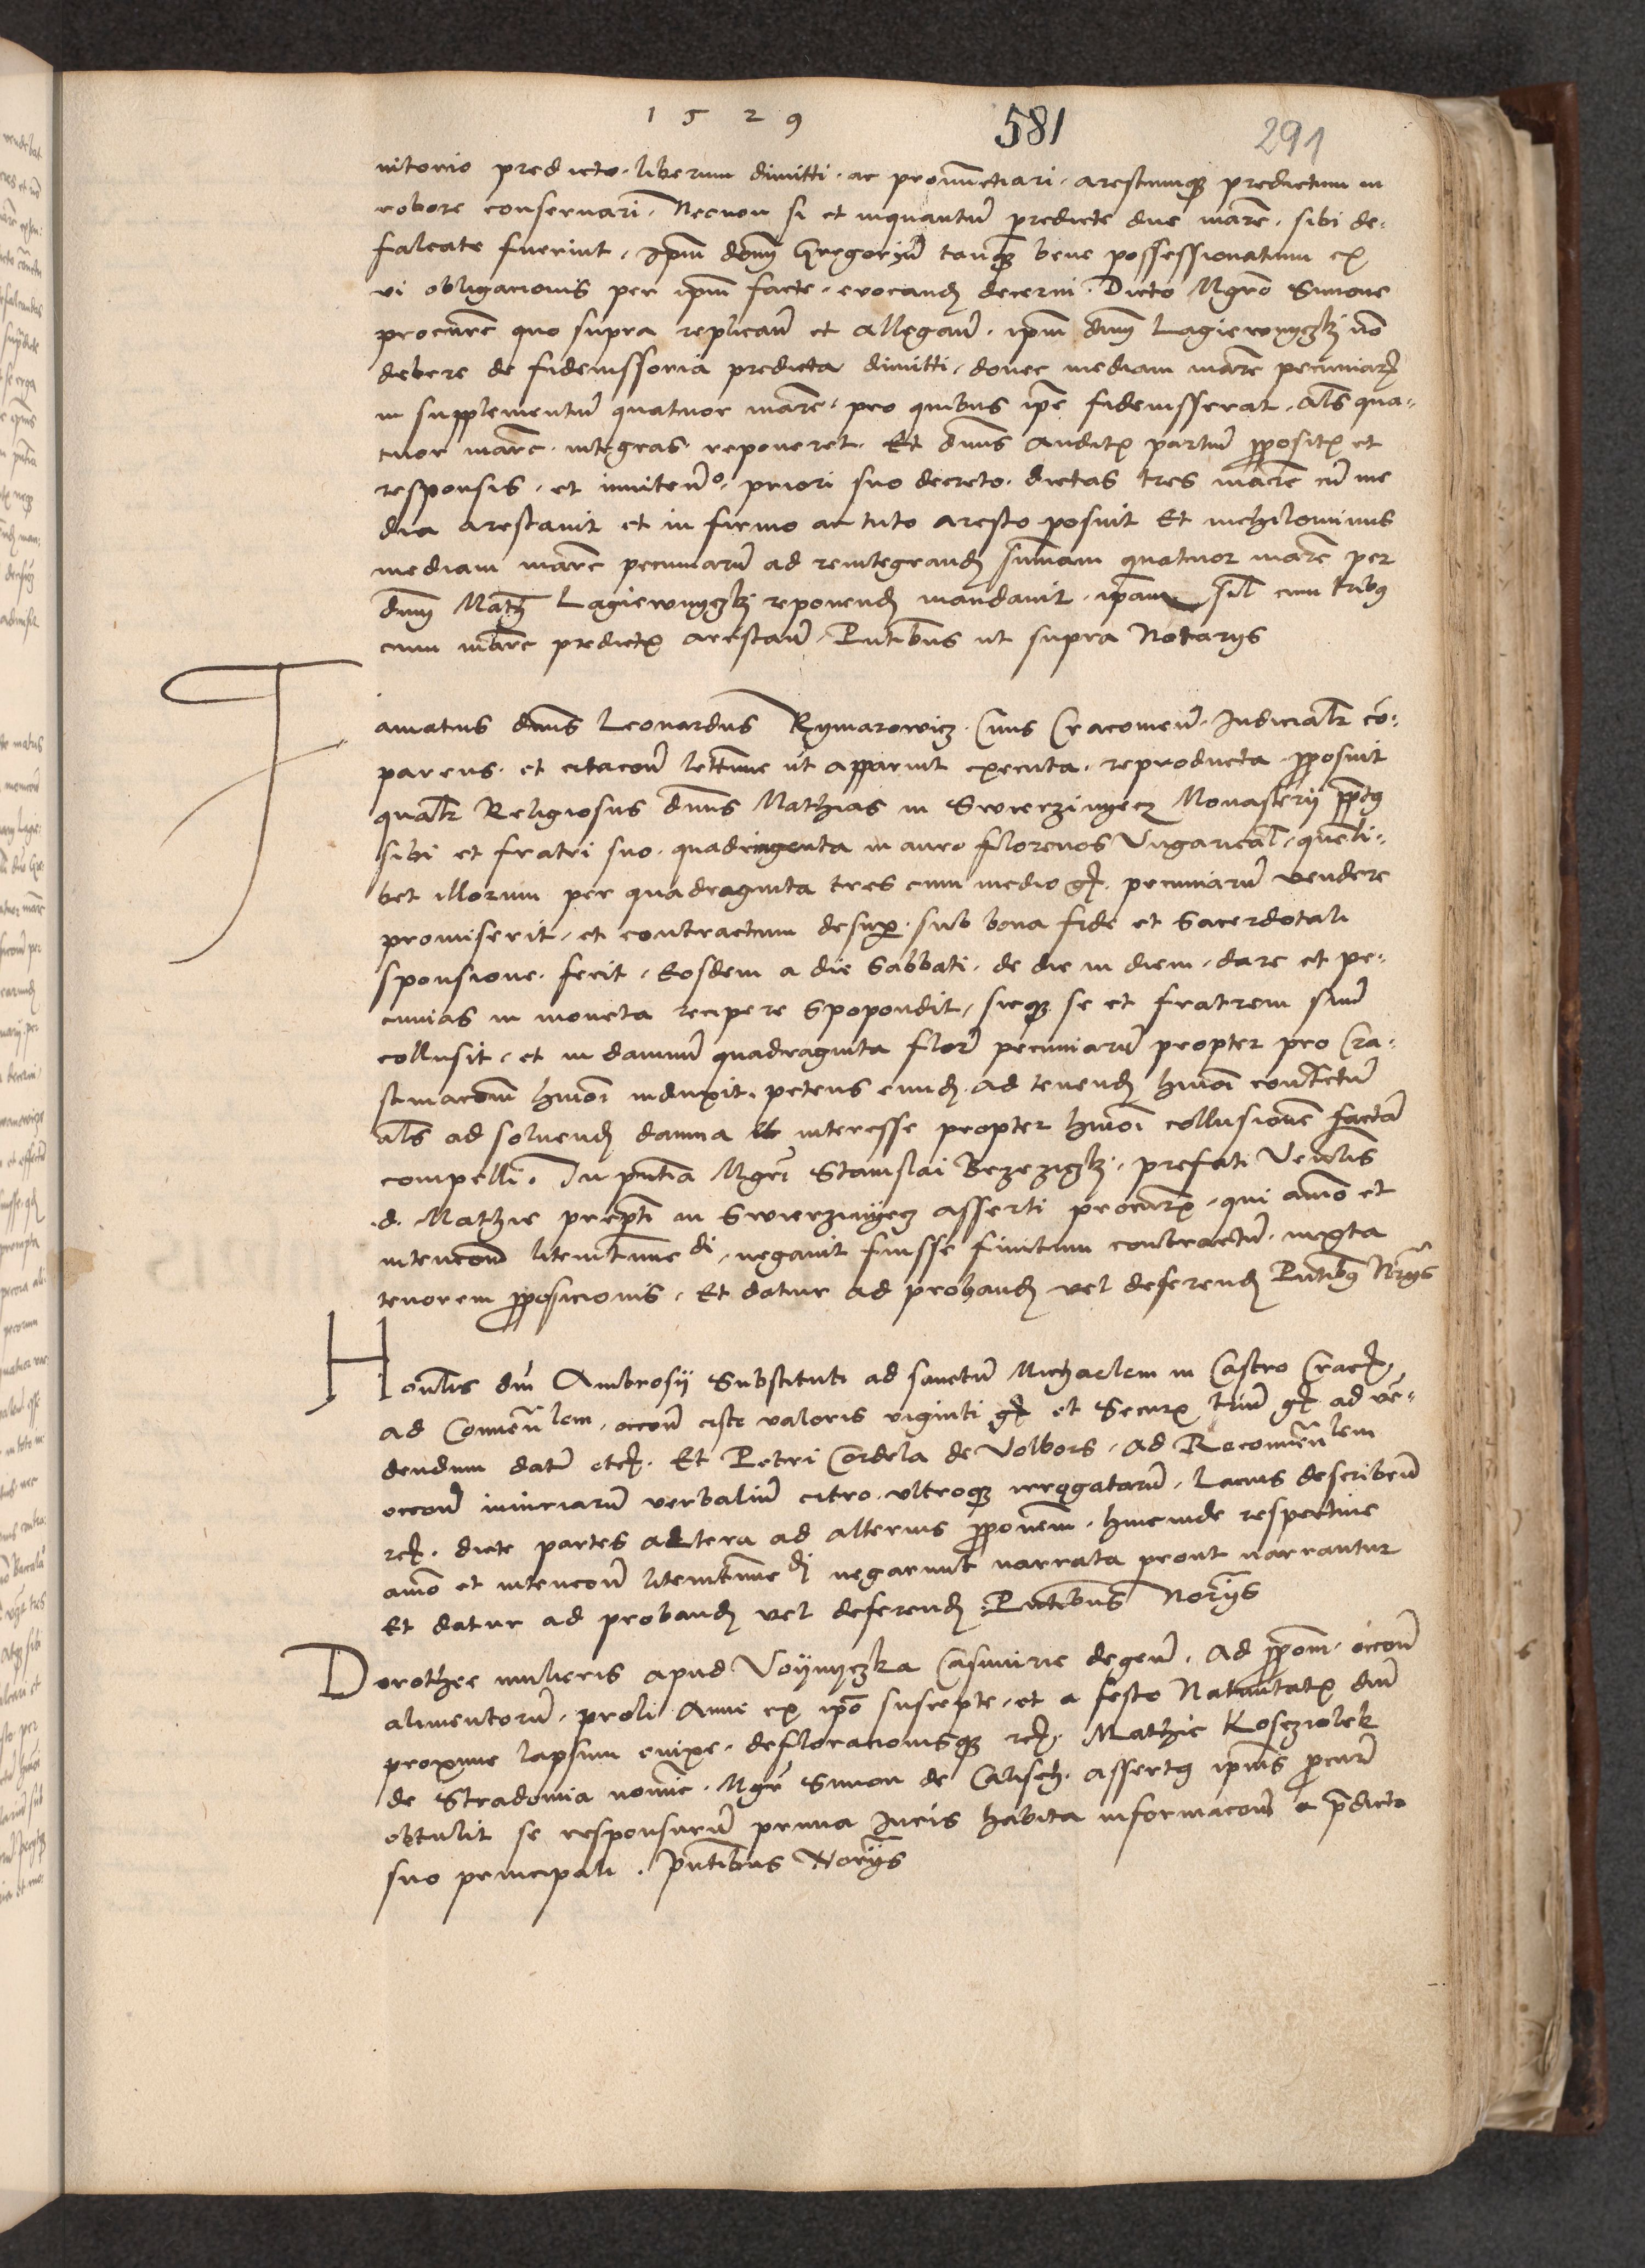 1529 581 291
nitorio predicto. liberum dimitti. ac pronunctiari. arestumq₃ predictum in
robore conseruari. Necnon si et inquantũ predicte due marc̃. sibi de⸗
falcate fuerint. Ipm̃ dom̃ Gregoriũ tanq₃ bene possessionatum ex
vi obligacionis per ipm̃ facte. euocand̃ decerni. Dicto Mgrõ Simone
procurẽ quo supra replican̄ et allegan̄. ipm̃ dnm̃ Lagiewnyczkj nõ
debere de fideiussoria predicta dimitti. donec mediam marc̃ pecuniar̃
in supplementũ quatuor marc̃. pro quibus ipe̅ fideiusserat. al̃s qua⸗
tuor marc̃. integras reponeret. Et dnus̃ auditis partiũ p̱positis et
responsis. et inniten̄o. priori suo decreto. dictas tres marc̃ cũ me
dia arestauit et in firmo ac tuto aresto posuit Et nichilominus
mediam marc̃ pecuniarũ ad reintegrand̃ sum̃am quatuor marc̃ per
dnm̃ Math̃ Lagiewnyczkj reponend̃ mandauit. ipam̃ sil̃ cum tribꝰ
cum marc̃ predictis arestan̄. Pñtibus ut supra Notarijs
Famatus dnus̃ Leonardus Rymarowicz. Ciuis Cracouieñ. Iudicialr̃ cõ⸗
parens. et citacoñ lettime ut apparuit executa. reproducta. p̱posuit
qualr̃ Religiosus dnus̃ Mathias in Swierziniecz Monasterij p̱ptꝰ
sibi et fratri suo. quadringenta in auro florenos Vngarical̃. quẽli⸗
bet illorum per quadraginta tres cum medio gr̃. pecuniarũ vendere
promiserit. et contractum desuper. sub bona fide et Sacerdotali
sponsione. fecit. Eosdem a die Sabbati. de die in diem. dare et pe⸗
cunias in moneta recipere Spopondit. sicq₃ se et fratrem suũ
collusit. et in damnũ quadraginta flor̃ pecuniarũ propter pro Cra⸗
stinacom̃ hmõi induxit. petens eund̃. ad tenend̃ hmõi contr̃ctũ
al̃s ad soluend̃ damna interesse propter hmõi collusionẽ factã
compelli. In pñtia Mgrĩ Stanislai Brzeziczkj. prefati Ven̄lis
d. Mathie prep̃ti in Swierziniecz asserti procuris. qui añio et
intencoñ litemtun̄e di. negauit fuisse finitum contractũ. iuxta
tenorem p̱posicionis. Et datur ad proband̃ vel deferend̃ Pñtibꝰ Nor̃ijs
Honl̃is dñi Ambrosij Substituti ad sanctũ Michaelem in Castro Crac̃.
ad Conuen̄lem. occoñ ciste valoris viginti gr̃ et Securis triũ gr̃ ad vẽ⸗
dendum datar̃ etc̃. Et Petri Cordela de Volbors. ad Reconuen̄lem
occoñ iniuriarũ verbaliũ citro. vltroq₃ irrogatarũ. Lacius describen̄
rc̃. dicte partes altera ad alterius p̱ponem̃. hincinde respectiue
añio et intencoñ litemtun̄e di negarunt narrata prout narrantur
Et datur ad proband̃ vel deferend̃ Pñtibus Norijs
Dorothee mulieris apud Voijnyczka Casimirie degeñ. Ad p̱pom̃. occoñ
alimentorũ. proli Anne ex ipõ suscepte. et a festo Natiuitatis diũ
proxime lapsum enixe. defloracionisq₃ rc̃. Mathie Koscziolek
de Stradomia nomiñe. Mgr̃ Simon de Calisch. assertꝰ ipius̃ ꝓcur̃
obtulit se responsurũ prima Iur̃is habita informacoñ a p̃dicto
suo principali. Pñtibus Norijs